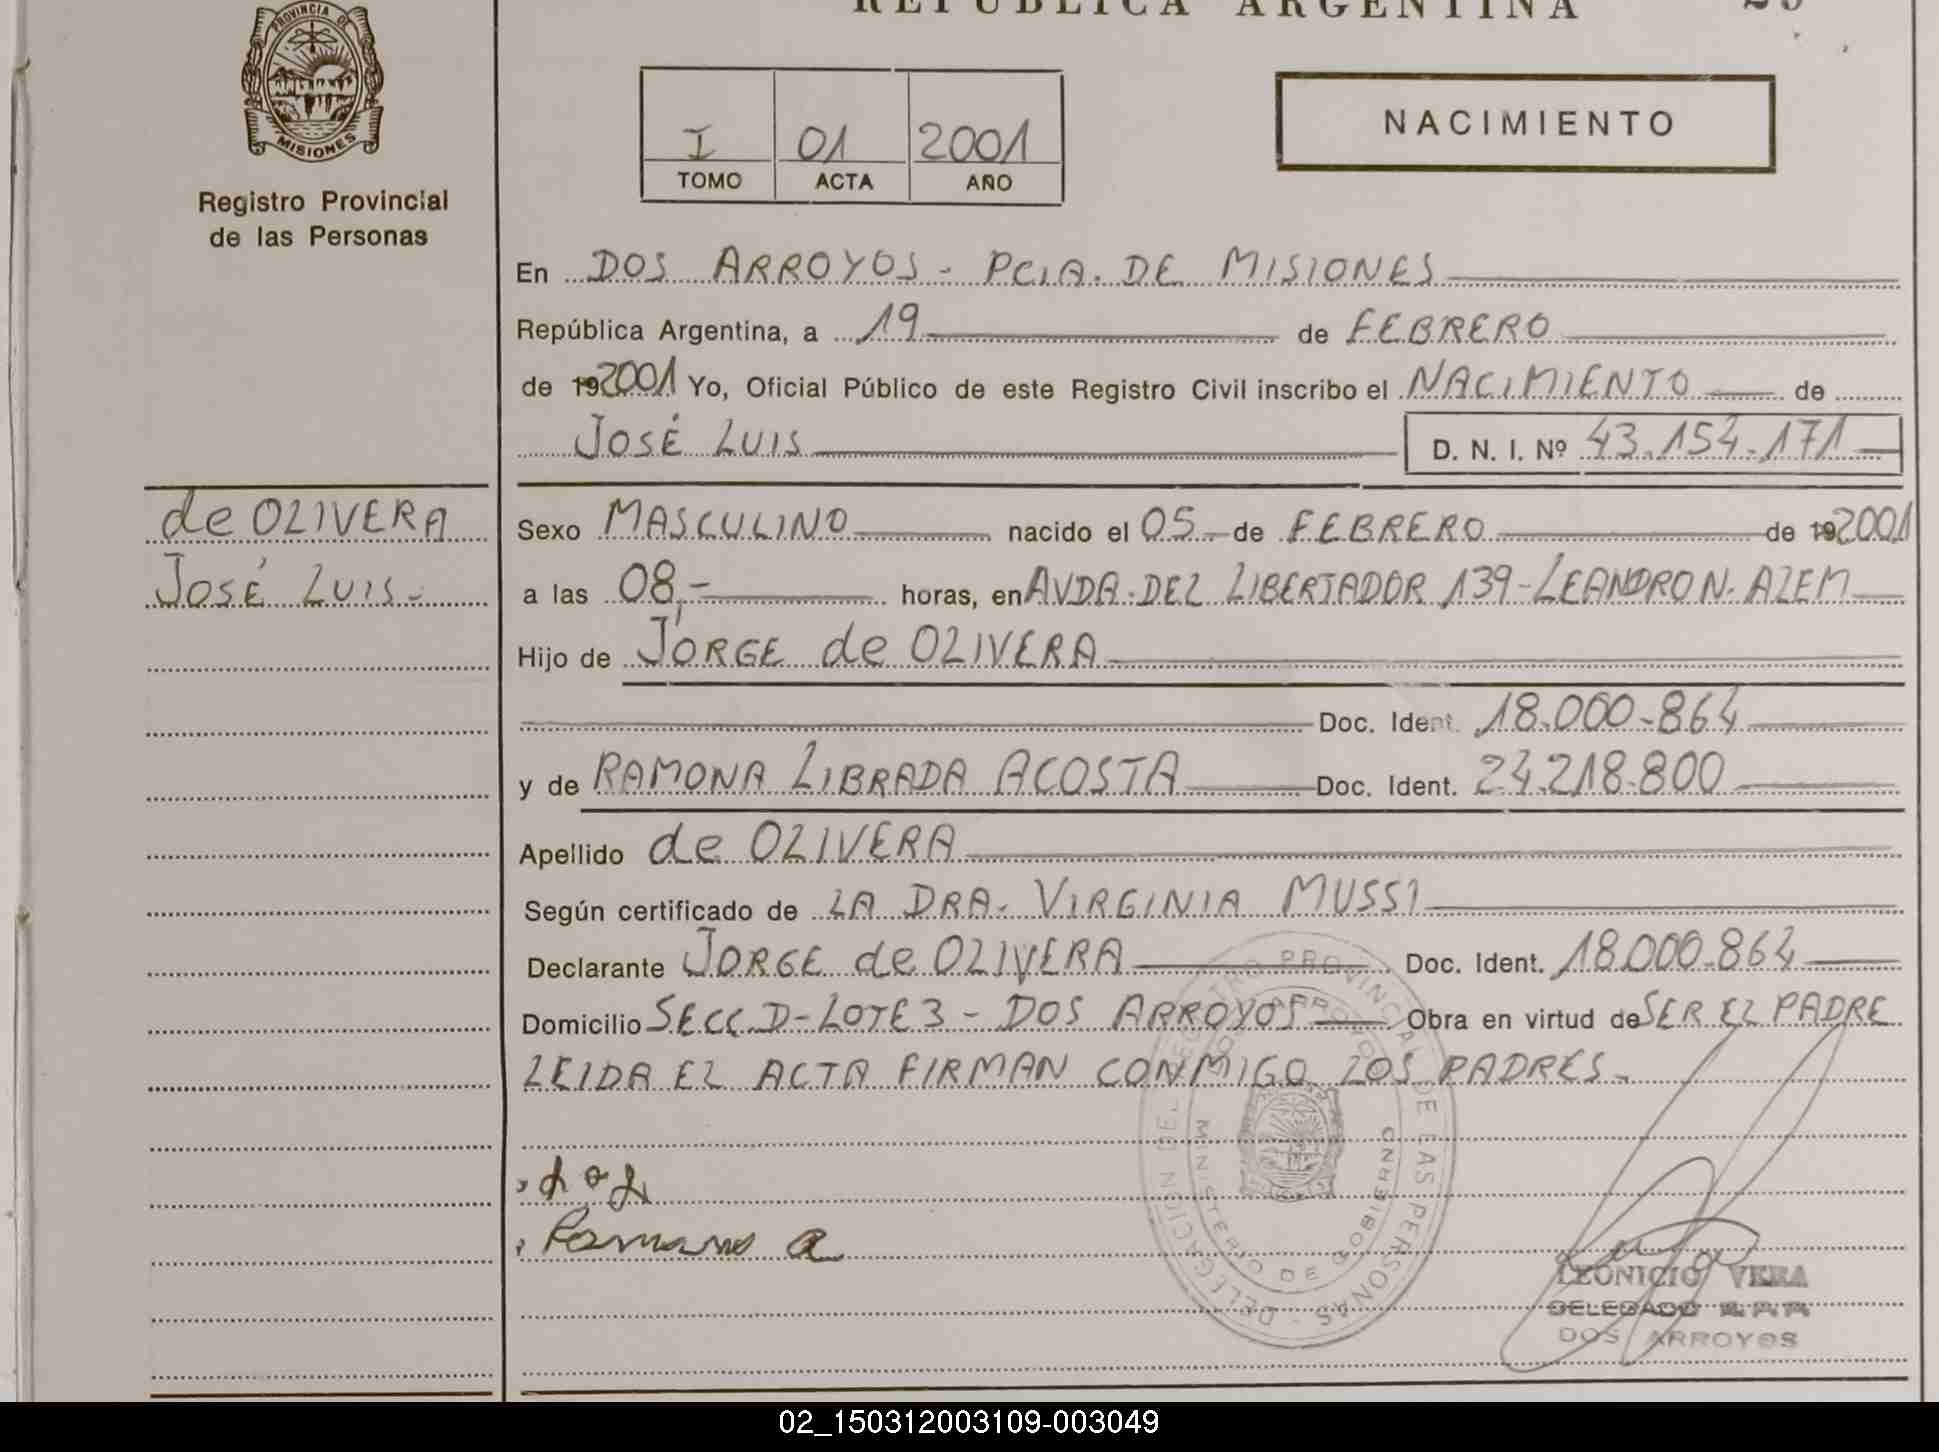 PROVINCIA DE
MISIONES
Registro Provincial
de las Personas
REPUBLICA ARGENTINA
I 01 2001
TOMO ACTA AÑO
NACIMIENTO
En DOS ARROYOS - PCIA. DE MISIONES
República Argentina, a 19 de FEBRERO
de 192001 Yo, Oficial Público de este Registro Civil inscribo el NACIMIENTO de
JOSÉ LUIS D. N. I. Nº 43.154.171
de OLIVERA
JOSÉ LUIS.-
Sexo MASCULINO nacido el 05 de FEBRERO de 192001
a las 08,- horas, en AVDA. DEL LIBERTADOR 139 - LEANDRO N. ALEM
Hijo de JORGE de OLIVERA
Doc. Ident. 18.000.864
y de RAMONA LIBRADA ACOSTA Doc. Ident. 24.218.800
Apellido de OLIVERA
Según certificado de LA DRA. VIRGINIA MUSSI
Declarante JORGE de OLIVERA Doc. Ident. 18.000.864
Domicilio SECC. D - LOTE 3 - DOS ARROYOS Obra en virtud de SER EL PADRE
LEIDA EL ACTA FIRMAN CONMIGO LOS PADRES.-
DELEGACION DEL REGISTRO PROVINCIAL DE LAS PERSONAS
DOS ARROYOS
MINISTERIO DE GOBIERNO
LEONICIO VERA
DELEGADO R.P.P.
DOS ARROYOS
02_150312003109-003049